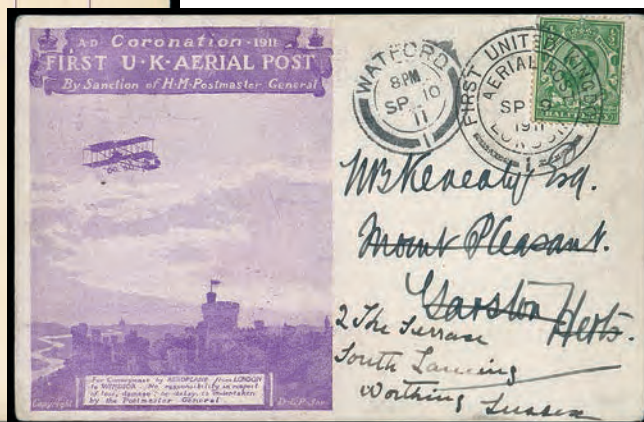 A·D Coronation·1911
FIRST U·K·AERIAL POST
By Sanction of H·M·Postmaster General
For Conveyance by AEROPLANE from LONDON
to WINDSOR. No responsibility in respect
of loss, damage or delay is undertaken
by the Postmaster General
Copyright
WATFORD
8 PM
SP 10
11
1
FIRST UNITED KINGDOM
AERIAL POST
SP 9
1911
LONDON
1
Esq.
Mount Pleasant.
Garston Herts.
2 The Terrace
South Lancing
Worthing Sussex